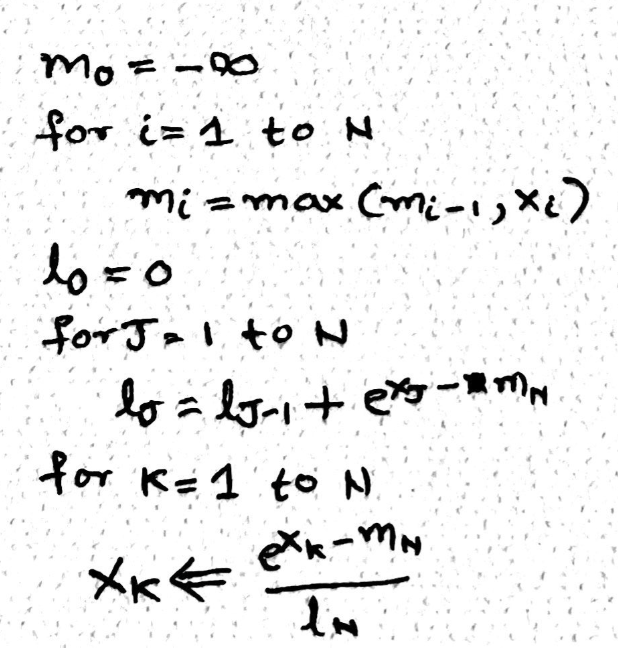 m₀ = -∞
for i = 1 to N
mᵢ = max (mᵢ₋₁, xᵢ)
l₀ = 0
for J = 1 to N
l_J = l_{J-1} + e^{x_J - m_N}
for K = 1 to N
x_K ⇐ \frac{e^{x_K - m_N}}{l_N}